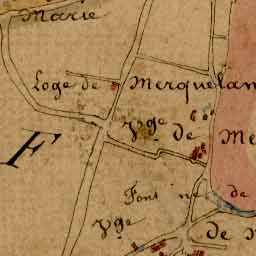 Marie
Loge de Merquelan
vge de Me
F
Font ne de
vge de